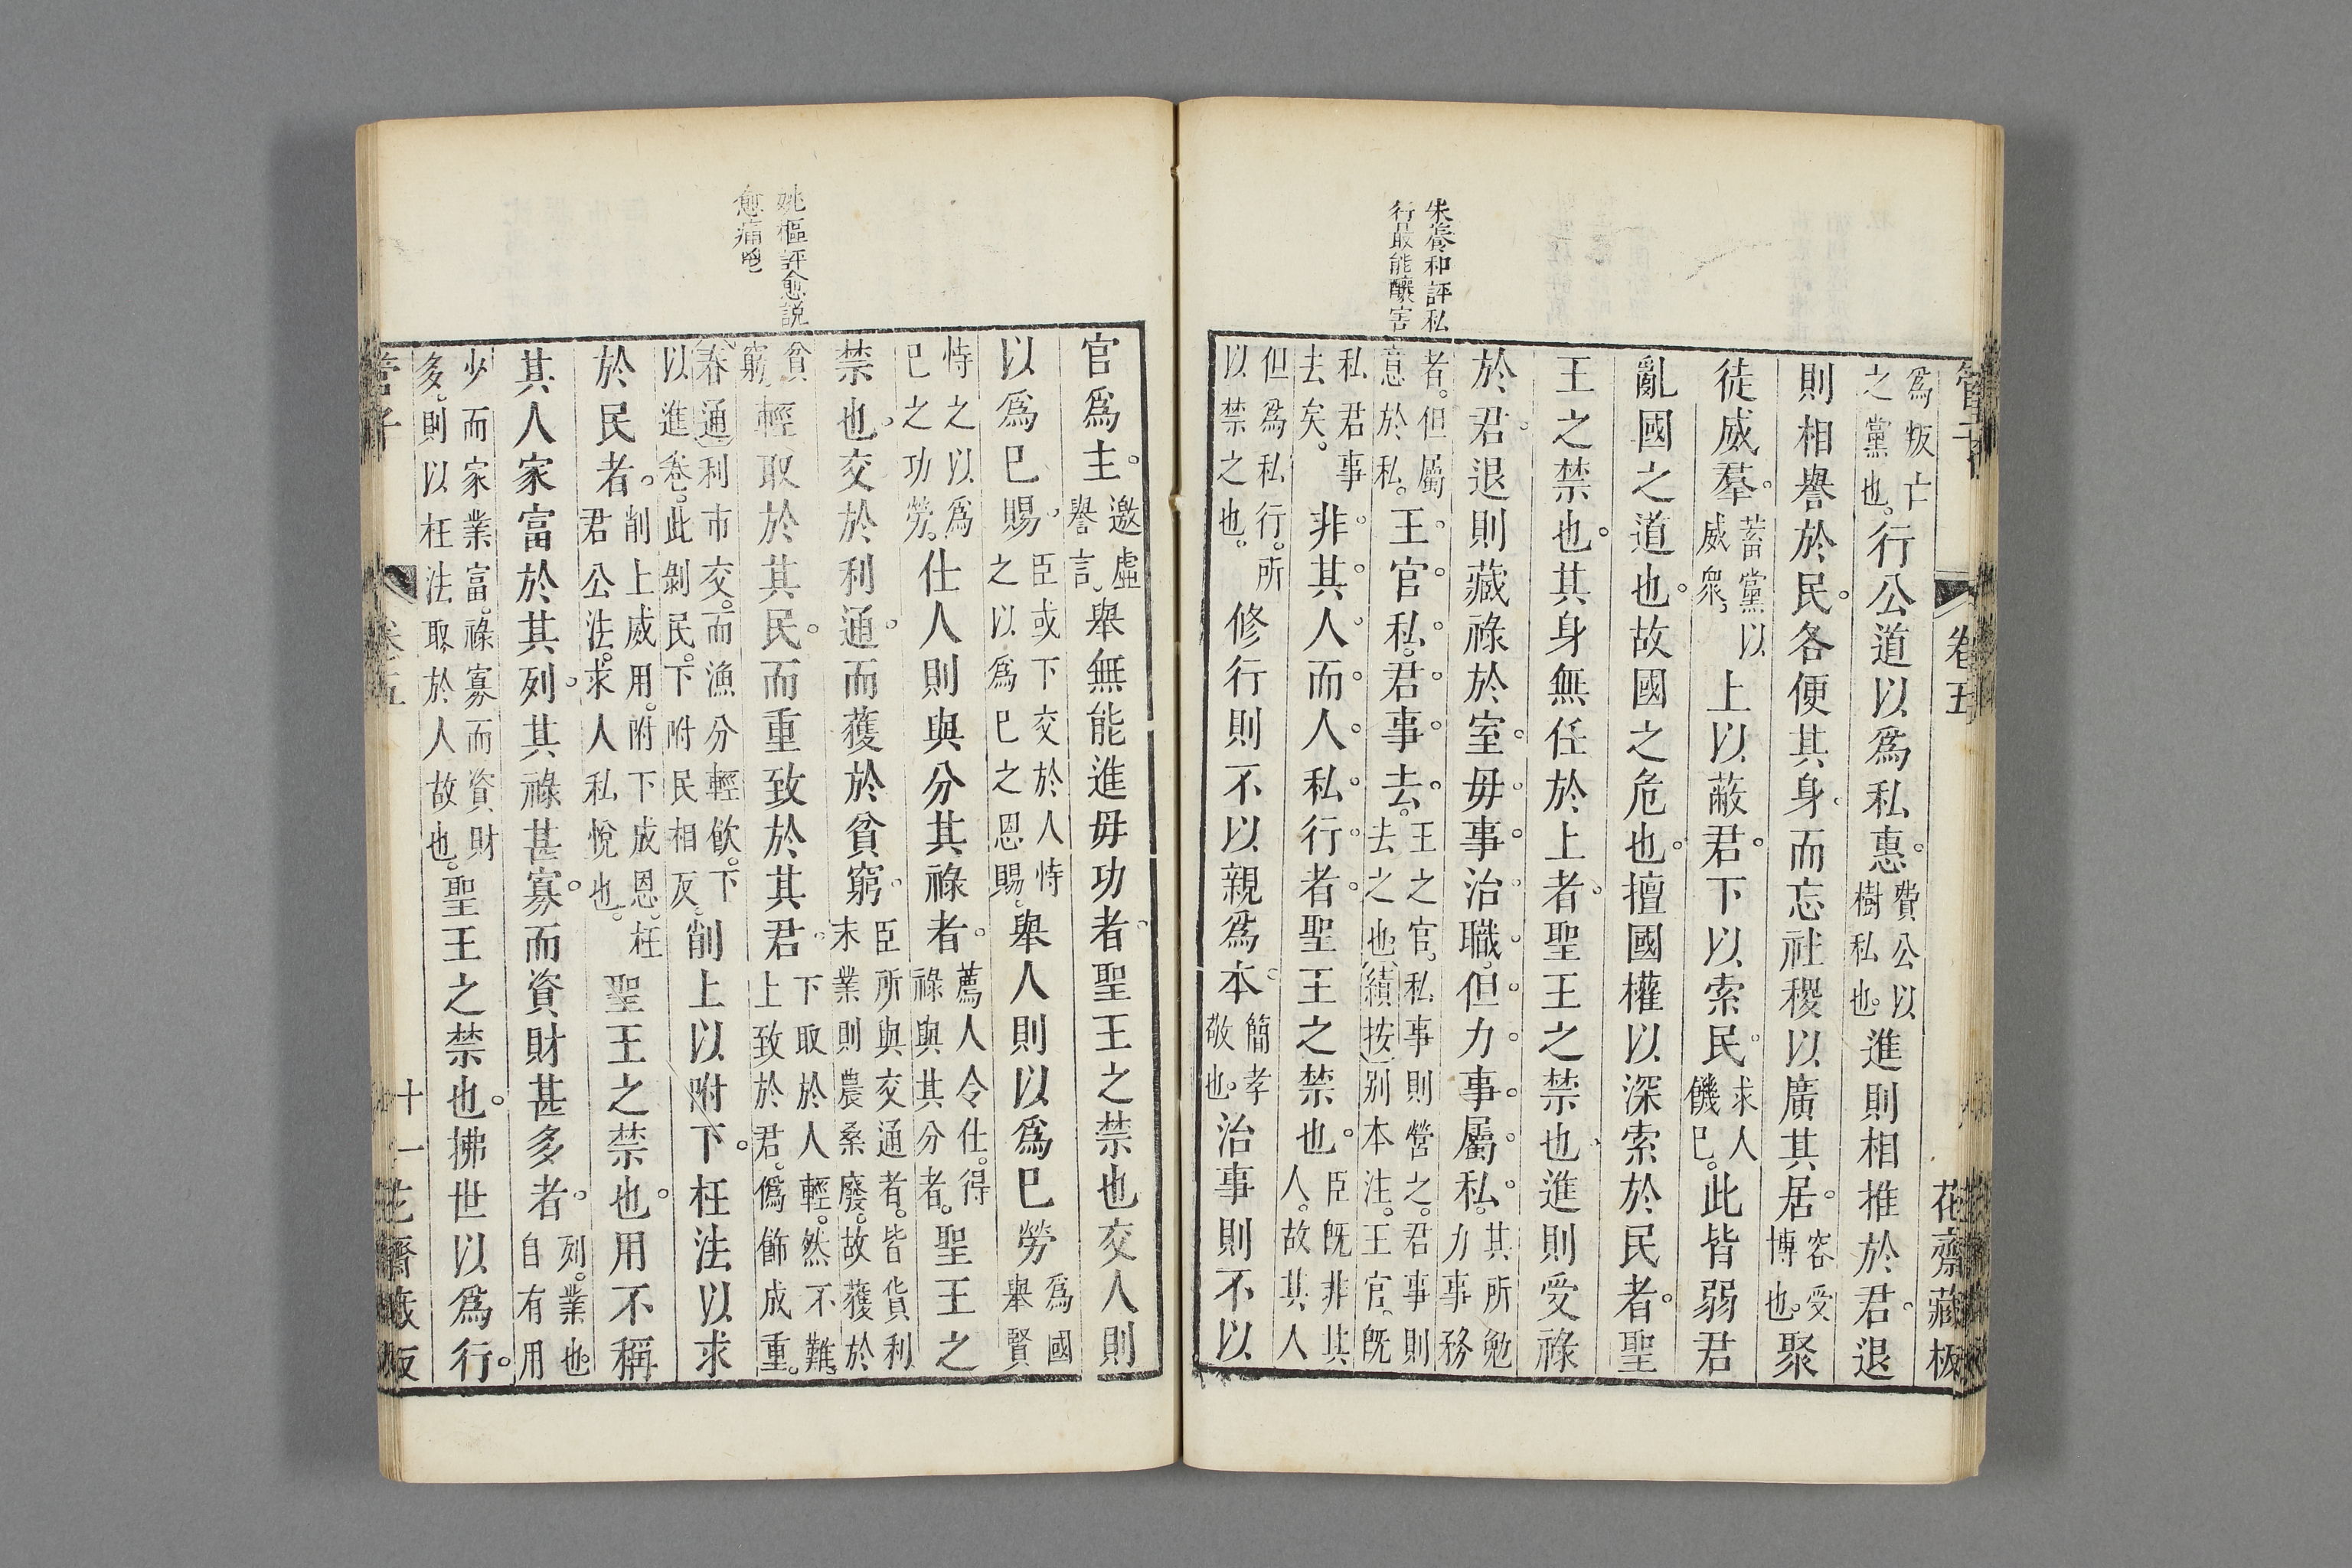 管子 卷五 花齋藏板
爲叛亡
之黨也。行公道以爲私惠。費公以
樹私也。進則相推於君。退
則相譽於民。各便其身。而忘社稷以廣其居。容受
博也。聚
徒威羣。蓄黨以
威衆。上以蔽君。下以索民。求人
饑巳。此皆弱君
亂國之道也。故國之危也。擅國權以深索於民者。聖
王之禁也。其身無任於上者。聖王之禁也、進則受祿
朱養和評私
行最能釀害
於君。退則藏祿於室。毋事治職。但力事屬私。其所勉
力事務
者。但屬
意於私。王官私。君事去。王之官。私事則營之。君事則
去之也。續按別本注。王官。旣
私君事
去矣。非其人而人私行者。聖王之禁也。臣旣非其
人。故其人
但爲私行。所
以禁之也。修行則不以親爲本。簡孝
敬也。治事則不以
官爲主。邀虛
譽言。舉無能進毋功者。聖王之禁也交人則
以爲巳賜。臣或下交於人恃
之以爲巳之恩賜。舉人則以爲巳勞爲國
舉賢
恃之以爲
巳之功勞。仕人則與分其祿者。薦人令仕。得
祿與其分者。聖王之
禁也。交於利通。而獲於貧窮。臣所與交通者。皆貨利
末業則農桑廢。故獲於
姚樞評愈説
愈痛
貧
窮。輕取於其民。而重致於其君。下取於人輕。然不難。
上致於君。僞飾成重。
春通利市交。而漁分輕飲。下
以進卷。此剝民。下附民相反。削上以附下。枉法以求
於民者。削上威用。附下成恩。枉
君公法。求人私悅也。聖王之禁也。用不稱
其人家富於其列。其祿甚寡。而資財甚多者。列。業也。
自有用
少而家業富。祿寡而資財
多。則以枉法取於人故也。聖王之禁也。拂世以爲行。
管子 卷五 十一